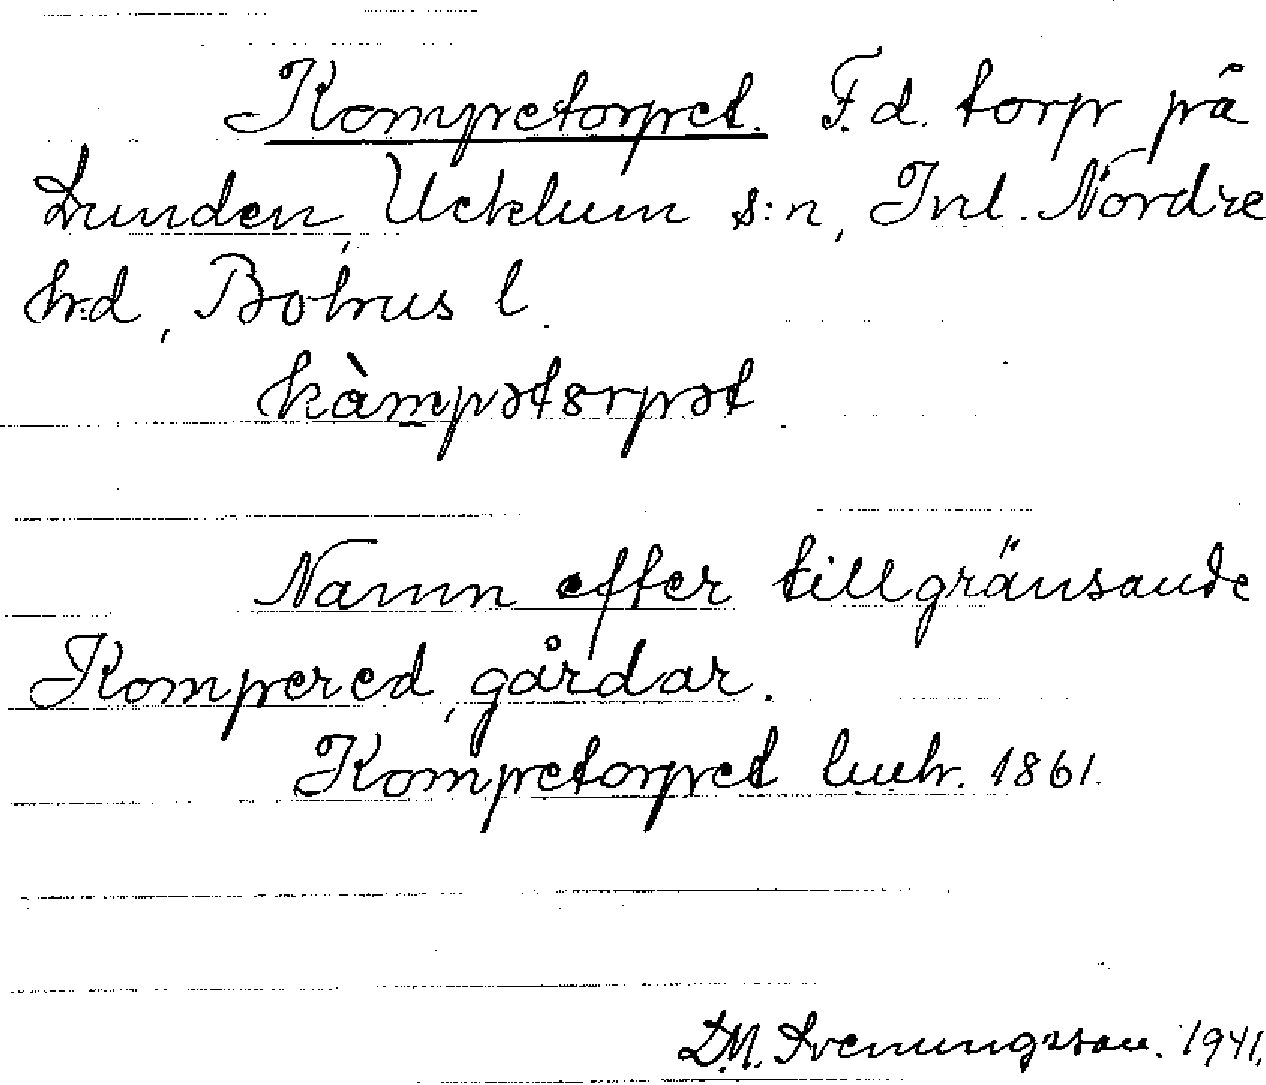 Kompetorpet. F.d. torp på
Lunden, Ucklum s:n, Inl. Nordre
h:d, Bohus l.
kàmpətərpət
Namn efter tillgränsande
Kompered, gårdar.
Kompetorpet huh. 1861.
D.M. Svenungsson. 1941.